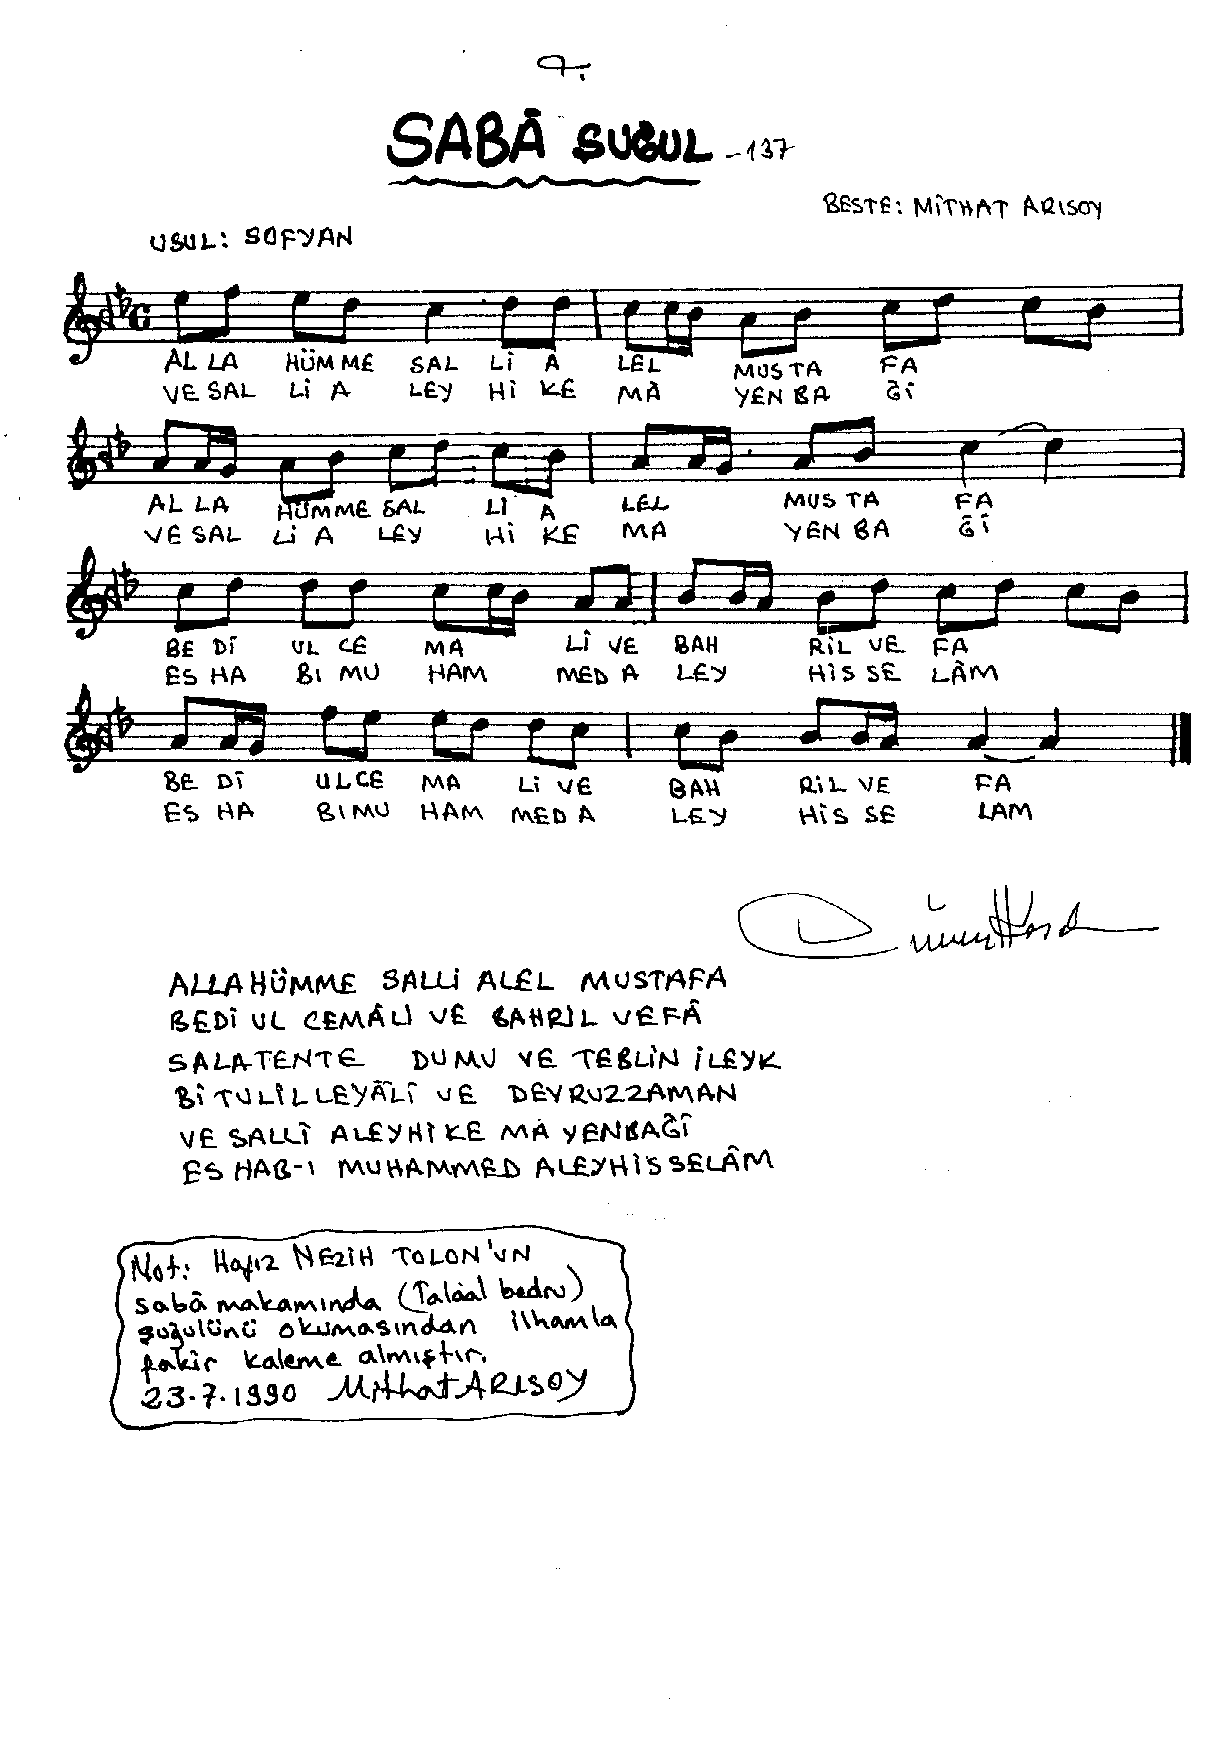 SABÂ ŞUĞUL -137
BESTE: MİTHAT ARISOY
USUL: SOFYAN
AL LA HÜM ME SAL LÎ A LEL MUS TA FA
VE SAL Lİ A LEY Hİ KE MÂ YEN BA ĞÎ
AL LA HÜM ME SAL LÎ A LEL MUS TA FA
VE SAL Lİ A LEY Hİ KE MA YEN BA ĞÎ
BE Dİ UL CE MA LÎ VE BAH RİL VE FA
ES HA BI MU HAM MED A LEY HİS SE LÂM
BE Dİ UL CE MA Lİ VE BAH RİL VE FA
ES HA BI MU HAM MED A LEY HİS SE LAM
ALLAHÜMME SALLİ ALEL MUSTAFA
BEDİ UL CEMÂLİ VE BAHRİL VEFÂ
SALATENTE DUMU VE TEBLİN İLEYK
Bİ TULİLLEYÂLÎ VE DEVRUZZAMAN
VE SALLİ ALEYHİ KE MA YENBAĞÎ
ES HAB-I MUHAMMED ALEYHİSSELÂM
Not: Hafız NEZİH TOLON'UN
sabâ makamında (Talâal bedru)
şuğulünü okumasından ilhamla
fakir kaleme almıştır.
23.7.1990 Mithat ARISOY